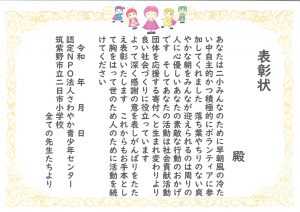 表彰状
殿
あなたは二小みんなのために早朝の冷た
い中自主的かつ積極的にボランティアに参
加してくれました 落ち葉やちりのない爽
やかな朝をみんなが迎えられるのは周りの
人に心優しいあなたの素敵な行動のおかげ
です そしてあなたの活動は社会貢献活動
団体を応援する寄付へと生まれ変わりより
良い社会づくりに役立っています
よって深く感謝の意を表しがんばりをたた
え表彰いたします これからもお手本とし
て胸をはって世のため人のために活動を続
けてください
令和 年 月 日
認定NPO法人さわやか青少年センター
筑紫野市立二日市小学校
全ての先生たちより